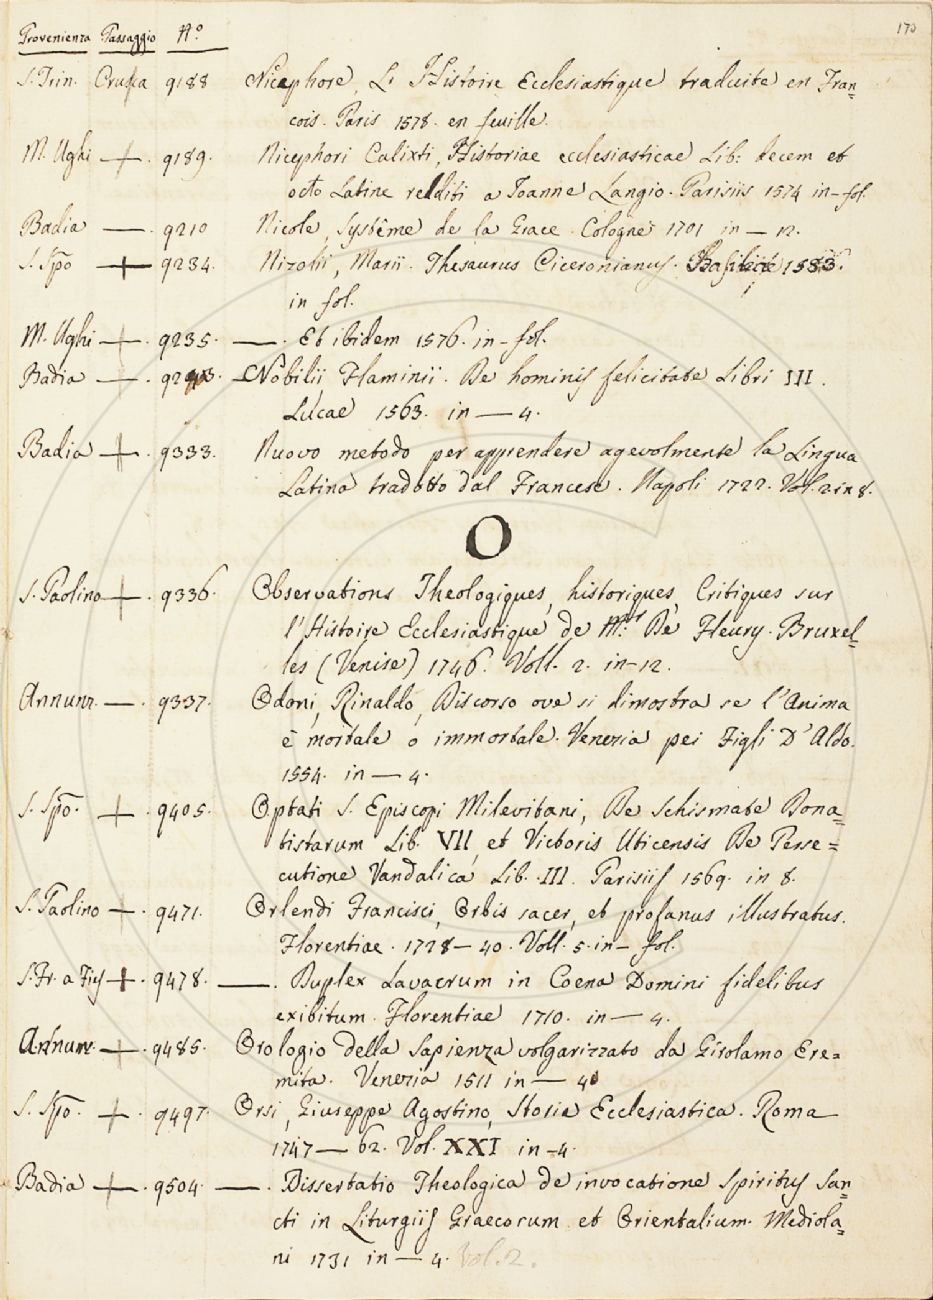 Provenienza Passaggio Nº 173
S. Trin. Crusca 9188 Nicephore, L'Histoire Ecclesiastique traduite en Fran=
cois. Paris 1578. en feuille.
M. Ughi + . 9189. Nicephori Calixti, Historiae ecclesiasticae Lib: decem et
octo Latine redditi a Joanne Langio. Parisiis 1574 in-fol.
Badia — . 9210 Nicole, Systême de la Grace. Cologne 1701 in — 12.
S. Spo + 9234. Nizolii, Marii. Thesaurus Ciceronianus. Basileae 1583.
in fol.
M. Ughi + . 9235. — . Et ibidem 1576. in-fol.
Badia — . Nobilii Flaminii. De hominis felicitate Libri III.
Lucae 1563. in — 4.
Badia + . 9333. Nuovo metodo per apprendere agevolmente la Lingua
Latina tradotto dal Francese. Napoli 1722. Vol. 2 in 8.
O
S. Paolino + . 9336. Observations Theologiques, historiques, Critiques sur
l'Histoire Ecclesiastique de Mr. De Fleury. Bruxel=
les (Venise) 1746. Voll. 2. in-12.
Annunz. — . 9337. Odoni, Rinaldo, Discorso ove si dimostra se l'Anima
è mortale o immortale. Venezia pei Figli D'Aldo.
1554. in — 4.
S. Spo. + . 9405. Optati S. Episcopi Milevitani, De Schismate Dona=
tistarum Lib. VII, et Victoris Uticensis De Perse=
cutione Vandalica Lib. III. Parisiis 1569. in 8.
S. Paolino + . 9471. Orlendi Francisci, Orbis sacer, et profanus illustratus.
Florentiae. 1728 — 40. Voll. 5. in — fol.
S. Fr. a Fies + . 9478. — . Duplex Lavacrum in Coena Domini fidelibus
exibitum. Florentiae 1710. in — 4.
Annunz. + . 9485. Orologio della Sapienza volgarizzato da Girolamo Ere=
mita. Venezia 1511 in — 4
S. Spo. + . 9497. Orsi, Giuseppe Agostino, Storia Ecclesiastica. Roma
1747 — 62. Vol. XXI in -4.
Badia + . 9504. — . Dissertatio Theologica de invocatione Spiritus San=
cti in Liturgiis Graecorum et Orientalium. Mediola=
ni 1731 in — 4. Vol. 2.